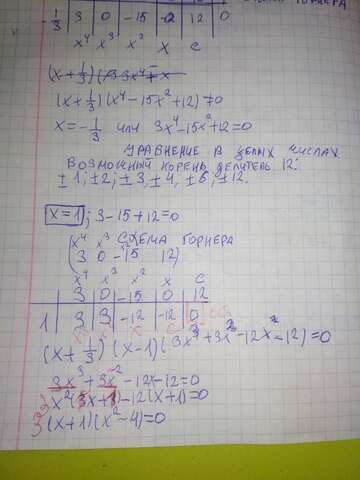 -1/3 | 3 | 0 | -15 | 0 | 12 | 0
x⁴ x³ x² x c
(x+1/3)(x⁴-15x²+12)≠0
x=-1/3 или 3x⁴-15x²+12=0
уравнение в целых числах
возможный корень делитель 12:
±1; ±2; ±3, ±4, ±6, ±12.
x=1; 3-15+12=0
схема горнера
x⁴ x³ x²
(3 0 -15 12)
x⁴ x³ x² x c
3 | 0 | -15 | 0 | 12
1 | 3 | 3 | -12 | -12 | 0
(x+1/3)(x-1)(3x³+3x²-12x-12)=0
3x³+3x²-12x-12=0
-12(x+1)=0
3(x+1)(x²-4)=0